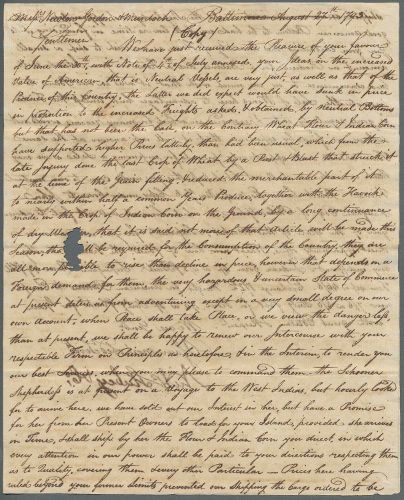 Messrs. Newton Gordon & Murdoch Baltimore August 27th 1793
Gentlemen (Copy)
We have just received the Pleasure of your favour
of June the 30th with Note of 4th of July annexed, your Ideas on the increased
Value of American, that is Neutral Vessels, are very just, as well as that of the
Produce of this Country, the Latter we did expect would have sunk in price
in proportion to the increased Freights asked, & obtained by Neutral Bottoms
but that has not been the Case, on the contrary Wheat Flour & Indian Corn
have supported higher Prices latterly, than had been usual, which from the
late Injury done the last Crop of Wheat by a Rust & Blast that struck it
at the time of the Grain filling, reduced the merchantable part of it
to near within half a common Years Produce, together with the Havock
made in the Crop of Indian Corn on the Ground, by a long continuance
of dry that it is said not more of that Article will be made this
Season, than will be required for the Consumption of the Country, they are
all more to rise than decline in price, however that depends on a
Foreign demand for them, the very hazardous & uncertain State of Commerce
at present deters us from adventuring except in a very small degree on our
own Account, when Peace shall take Place, or we view the danger less,
than at present, we shall be happy to renew our Intercourse with your
respectable Firm on Principles as heretofore. In the Interim, to render you
our best Services, when you may please to command them, the Schooner
Shepherdess is at present on a Voyage to the West Indias, but hourly looked
for to arrive here, we have sold out our Interest in her, but have a Promise
for her from her Present Owners to load for your Island, provided she arrives
in Time, & shall ship by her the Flour & Indian Corn you direct, in which
every attention in our power shall be paid to your directions respecting them
as to Quality, covering them & every other Particular — Prices here having
ruled beyond your former Limits prevented our Shipping the Cargo ordered to be